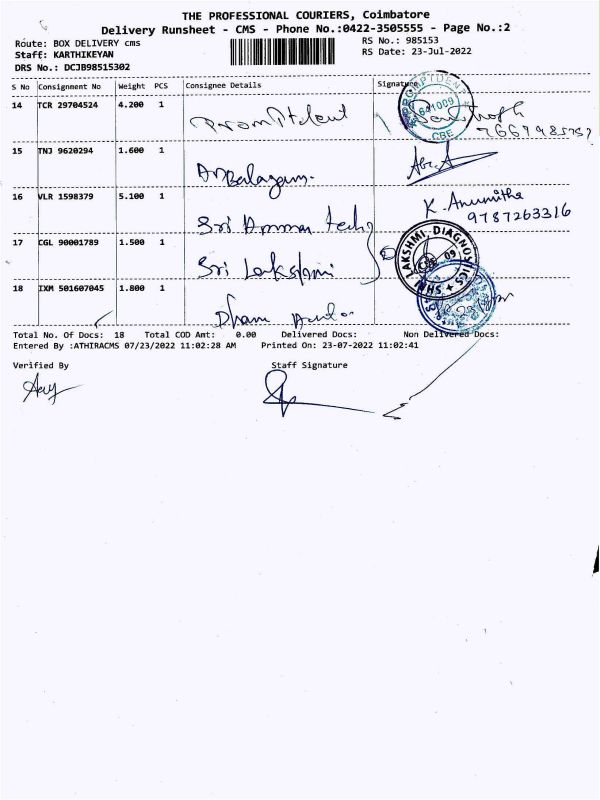 THE PROFESSIONAL COURIERS, Coimbatore
Delivery Runsheet - CMS - Phone No.:0422-3505555 - Page No.:2
Route: BOX DELIVERY cms
RS No.: 985153
Staff: KARTHIKEYAN
RS Date: 23-Jul-2022
DRS No.: DCJB98515302
S No Consignment No Weight PCS Consignee Details Signature
14 TCR 29704524 4.200 1
PROMPTDENT 641009 CBE
15 TNJ 9620294 1.600 1
16 VLR 1598379 5.100 1
K. Anumitha
9787263316
Sri Amman tech
17 CGL 90001789 1.500 1
Sri Lakshmi
SHRI LAKSHMI DIAGNOSTICS CBE 09
18 IXM 501607045 1.800 1
Total No. Of Docs: 18 Total COD Amt: 0.00 Delivered Docs: Non Delivered Docs:
Entered By :ATHIRACMS 07/23/2022 11:02:28 AM Printed On: 23-07-2022 11:02:41
Verified By Staff Signature